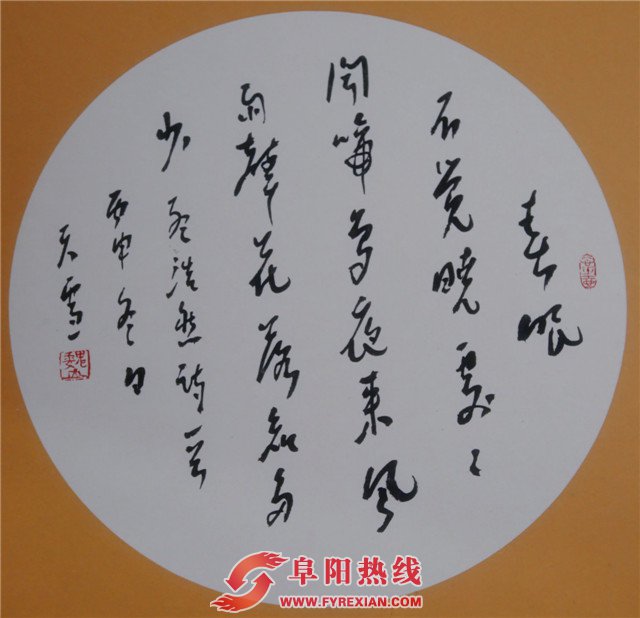 春眠
不觉晓处处
闻啼鸟夜来风
雨声花落知多
少 孟浩然诗一首
丙申冬日
天雪
阜阳热线
WWW.FYREXIAN.COM